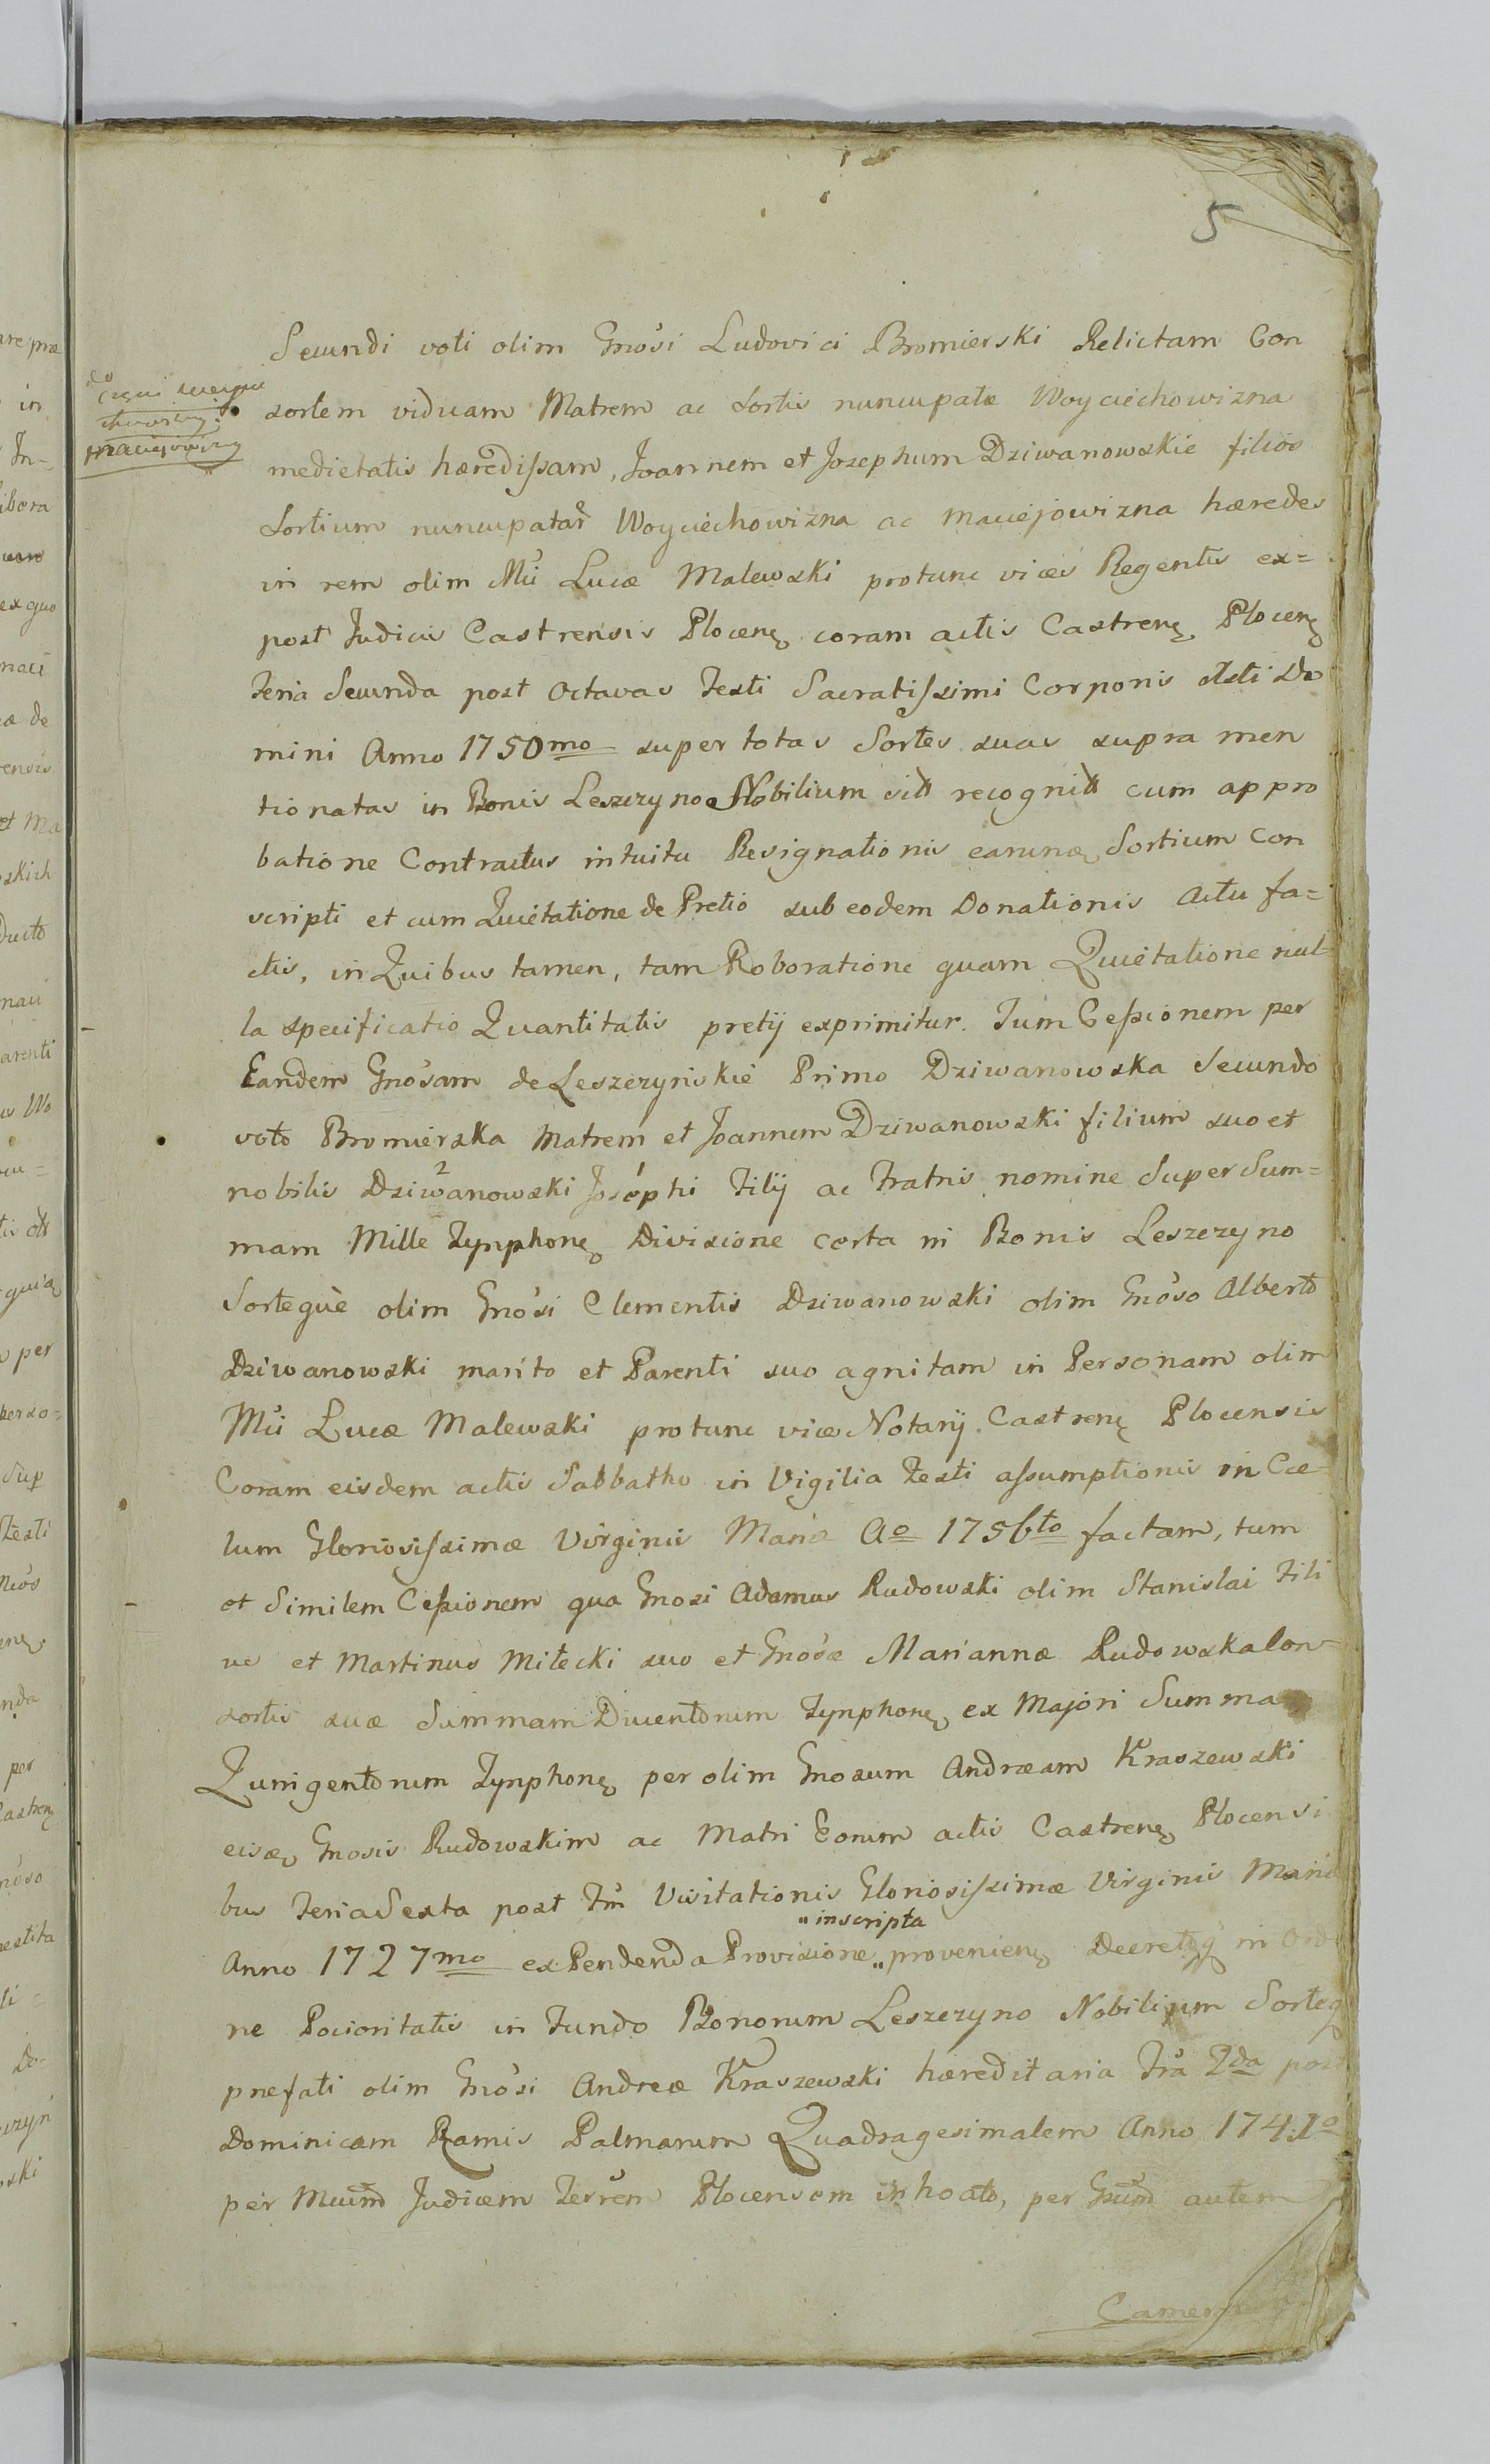 5
Secundi voti olim Gnosi Ludovici Bromierski Relictam Con
sortem viduam Matrem ac sortis nuncupatæ Woyciechowizna
medietatis hæredissam, Joannem et Josephum Dziwanowskie filios
Sortium nuncupatar Woyciechowizna ac Maciejowizna hæredes
in rem olim Mci Lucæ Malewski protunc vices Regentis ex=
post Judicis Castrensis Plocenę coram actis Castrenę Plocenę
Feria Secunda post Octavas Festi Sacratissimi Corporis Xsti Do
mini Anno 1750mo super totas Sortes suas supra men
tionatas in Bonis Leszczyno Nobilium sitt recognitt cum appro
batione Contractus intuitu Resignationis earumq Sortium con
scripti et cum Quietatione de Pretio sub eodem Donationis Actu fa=
ctis, in Quibus tamen, tam Roboratione quam Quietatione nul
la specificatio Quantitatis pretij exprimitur. Tum Cessionem per
Eandem Gnosam de Leszczyńskie Primo Dziwanowska Secundo
voto Bromierska Matrem et Joannem Dziwanowski filium suo et
nobilis Dziwanowski Josephi Filij ac Fratris nomine Super Sum=
mam Mille Tynphonę Divisione certa in Bonis Leszczyno
Sorteque olim Gnosi Clementis Dziwanowski olim Gnoso Alberto
Dziwanowski marito et Parenti suo agnitam in Personam olim
Mci Lucæ Malewski protunc vices Notarij Castrenę Plocensis
Coram eisdem actis Sabbatho in Vigilia Festi assumptionis in Cæ=
lum Gloriosissimæ Virginis Mariæ Ao 1756to factam, tum
et Similem Cessionem qua Gnosi Adamus Rudowski olim Stanislai Fili
us et Martinus Miłecki suo et Gnosæ Mariannæ Rudowska Con=
sortis suæ Summam Ducentorum Tynphonę ex Majori Summa
Quingentorum Tynphonę per olim Gnosum Andræam Kraszewski
eisdę Gnosis Rudowskim ac Matri Eorum actis Castrenę Plocensi
bus Feria Sexta post Fm Visitationis Gloriosissimæ Virginis Mariæ
„inscripta
Anno 1727mo ex Pendenda Provisione „ provenienę Decretoq in Ordi
ne Pocioritatis in Fundo Bonorum Leszczyno Nobilium Sorteq
prefati olim Gnosi Andreæ Kraszewski hæreditaria Fra 2da post
Dominicam Ramis Palmarum Quadragesimalem Anno 1741o
per Judicem Terrem Plocensem inhoato, per autem